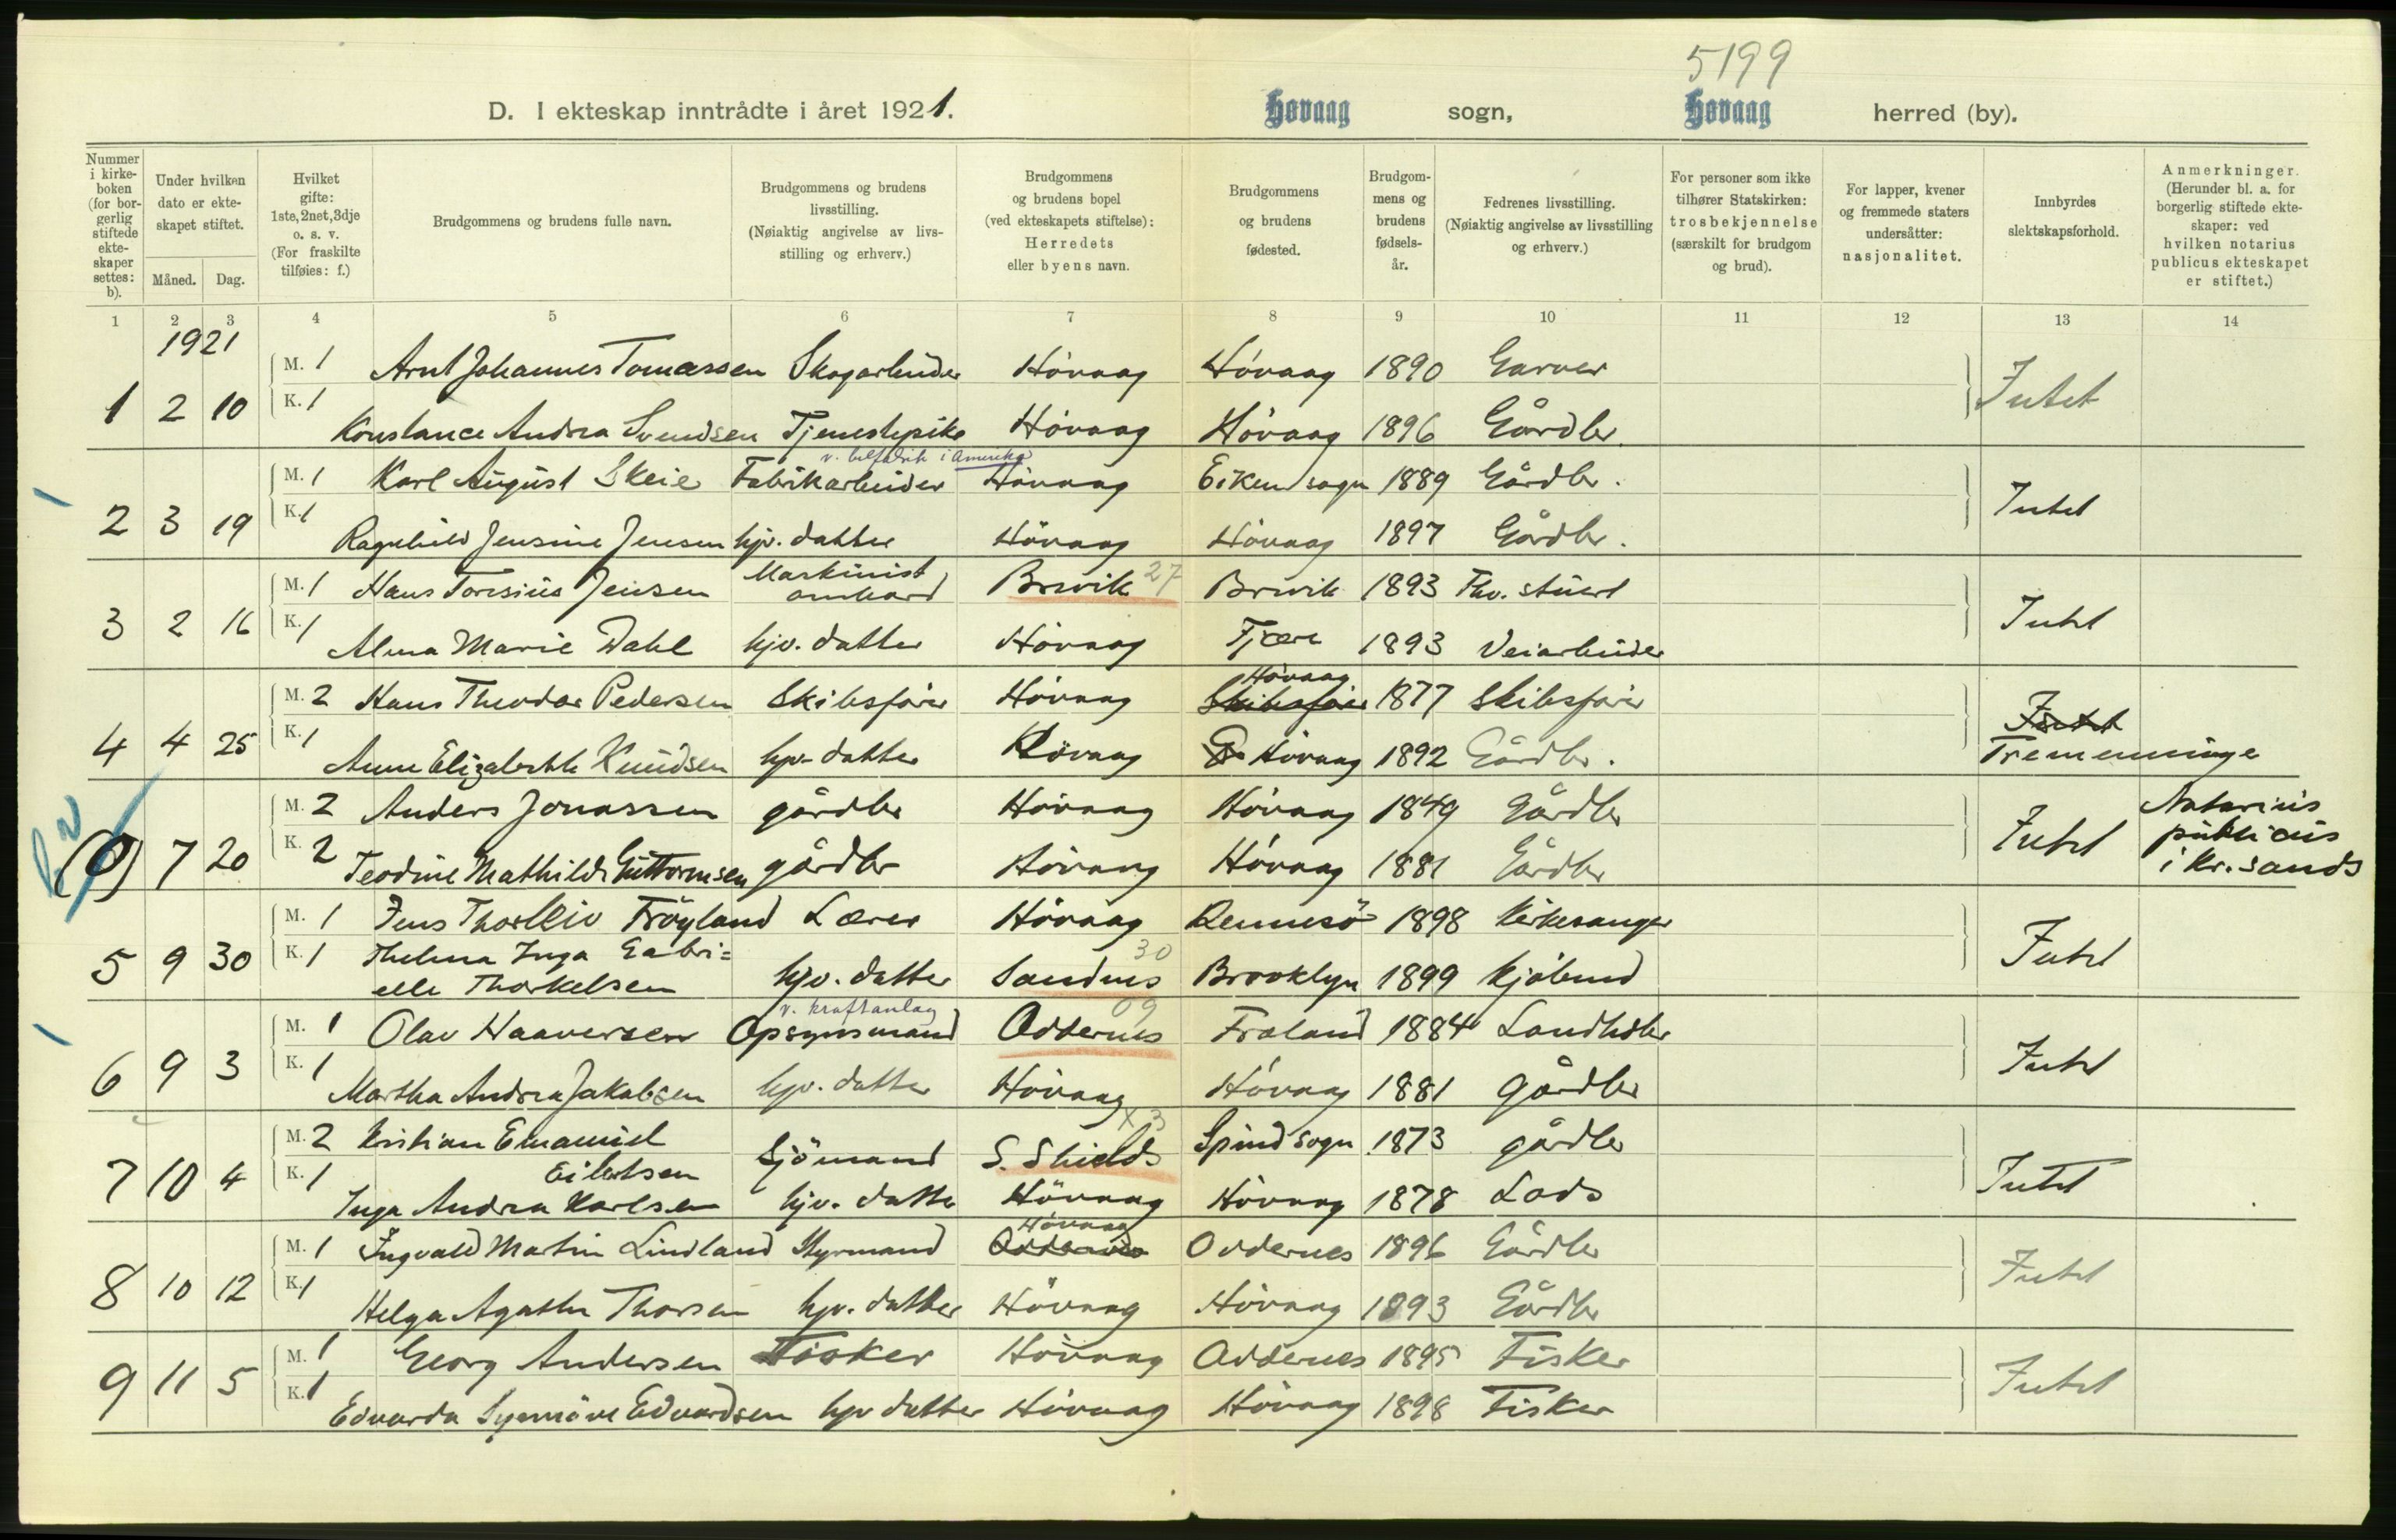 5199
D. I ekteskap inntrådte i året 1921. Høvaag sogn, Høvaag herred (by).
Nummer i kirkeboken (for borgerlig stiftede ekteskaper settes: b).
Under hvilken dato er ekteskapet stiftet.
Måned. Dag.
Hvilket gifte: 1ste, 2net, 3dje o. s. v. (For fraskilte tilføies: f.)
Brudgommens og brudens fulle navn.
Brudgommens og brudens livsstilling. (Nøiaktig angivelse av livsstilling og erhverv.)
Brudgommens og brudens bopel (ved ekteskapets stiftelse): Herredets eller byens navn.
Brudgommens og brudens fødested.
Brudgommens og brudens fødselsår.
Fedrenes livsstilling. (Nøiaktig angivelse av livsstilling og erhverv.)
For personer som ikke tilhører Statskirken: trosbekjennelse (særskilt for brudgom og brud).
For lapper, kvener og fremmede staters undersåtter: nasjonalitet.
Innbyrdes slektskapsforhold.
Anmerkninger. (Herunder bl. a. for borgerlig stiftede ekteskaper: ved hvilken notarius publicus ekteskapet er stiftet.)
1 2 3 4 5 6 7 8 9 10 11 12 13 14
1921
M. 1 Arnt Johannes Tomassen Skogarbeider Hövaag Hövaag 1890 Garver
1 2 10 K. 1 Konstance Andrea Svendsen Tjenestepike Hövaag Hövaag 1896 Gårdbr. Intet
v. bilfabrik i Amerika
M. 1 Karl August Skeie Fabrikarbeider Hövaag Eiken sogn 1889 Gårdbr.
2 3 19 K. 1 Ragnhild Jensine Jensen hjv. datter Hövaag Hövaag 1897 Gårdbr. Intet
M. 1 Hans Torsius Jensen Maskinist ombord Brevik 27 Brevik 1893 Fhv. stuert
3 2 16 K. 1 Alma Marie Dahl hjv. datter Hövaag Fjære 1893 Veiarbeider Intet
M. 2 Hans Theodor Pedersen Skibsförer Hövaag Skibsförer Hövaag 1877 Skibsförer
4 4 25 K. 1 Anne Elizabeth Knudsen hjv. datter Hövaag G Hövaag 1892 Gårdbr. Intet Tremenninge
M. 2 Anders Jonassen gårdbr Hövaag Hövaag 1849 Gårdbr
(0) 7 20 K. 2 Teodine Mathilde Guttormsen gårdbr Hövaag Hövaag 1881 Gårdbr Intet Notarius publicus i Kr.sands
M. 1 Jens Thorleiv Fröyland Lærer Hövaag Rennesö 1898 Kirkesanger
5 9 30 K. 1 Thelma Inga Gabri=
elle Thorkelsen hjv. datter Sandnes 30 Brooklyn 1899 Kjöbmd Intet
v. kraftanlæg
M. 1 Olav Haaversen Opsynsmand Oddernes 09 Froland 1884 Landhdlr
6 9 3 K. 1 Martha Andrea Jakobsen hjv. datter Hövaag Hövaag 1881 gårdbr Intet
M. 2 Kristian Emanuel
Eilertsen Sjömand S. Shields x3 Spind sogn 1873 gårdbr
7 10 4 K. 1 Inga Andrea Karlsen hjv. datter Hövaag Hövaag 1878 Lods Intet
M. 1 Ingvald Martin Lindland Styrmand Oddernes Hövaag Oddernes 1896 Gårdbr
8 10 12 K. 1 Helga Agathe Thorsen hjv. datter Hövaag Hövaag 1893 Gårdbr Intet
M. 1 Georg Andersen Fisker Hövaag Oddernes 1895 Fisker
9 11 5 K. 1 Edvarda Synnöve Edvardsen hjv datter Hövaag Hövaag 1898 Fisker Intet